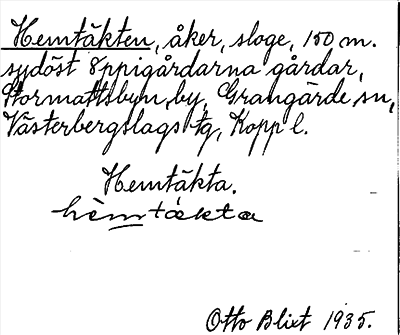 Hemtäkten, åker, sloge, 150 m.
sydöst Oppigårdarna gårdar,
Stormattsbyn, by, Grangärde sn,
Västerbergslags tg, Kopp l.
Hemtäkta.
hèmtäkta
Otto Blixt 1935.